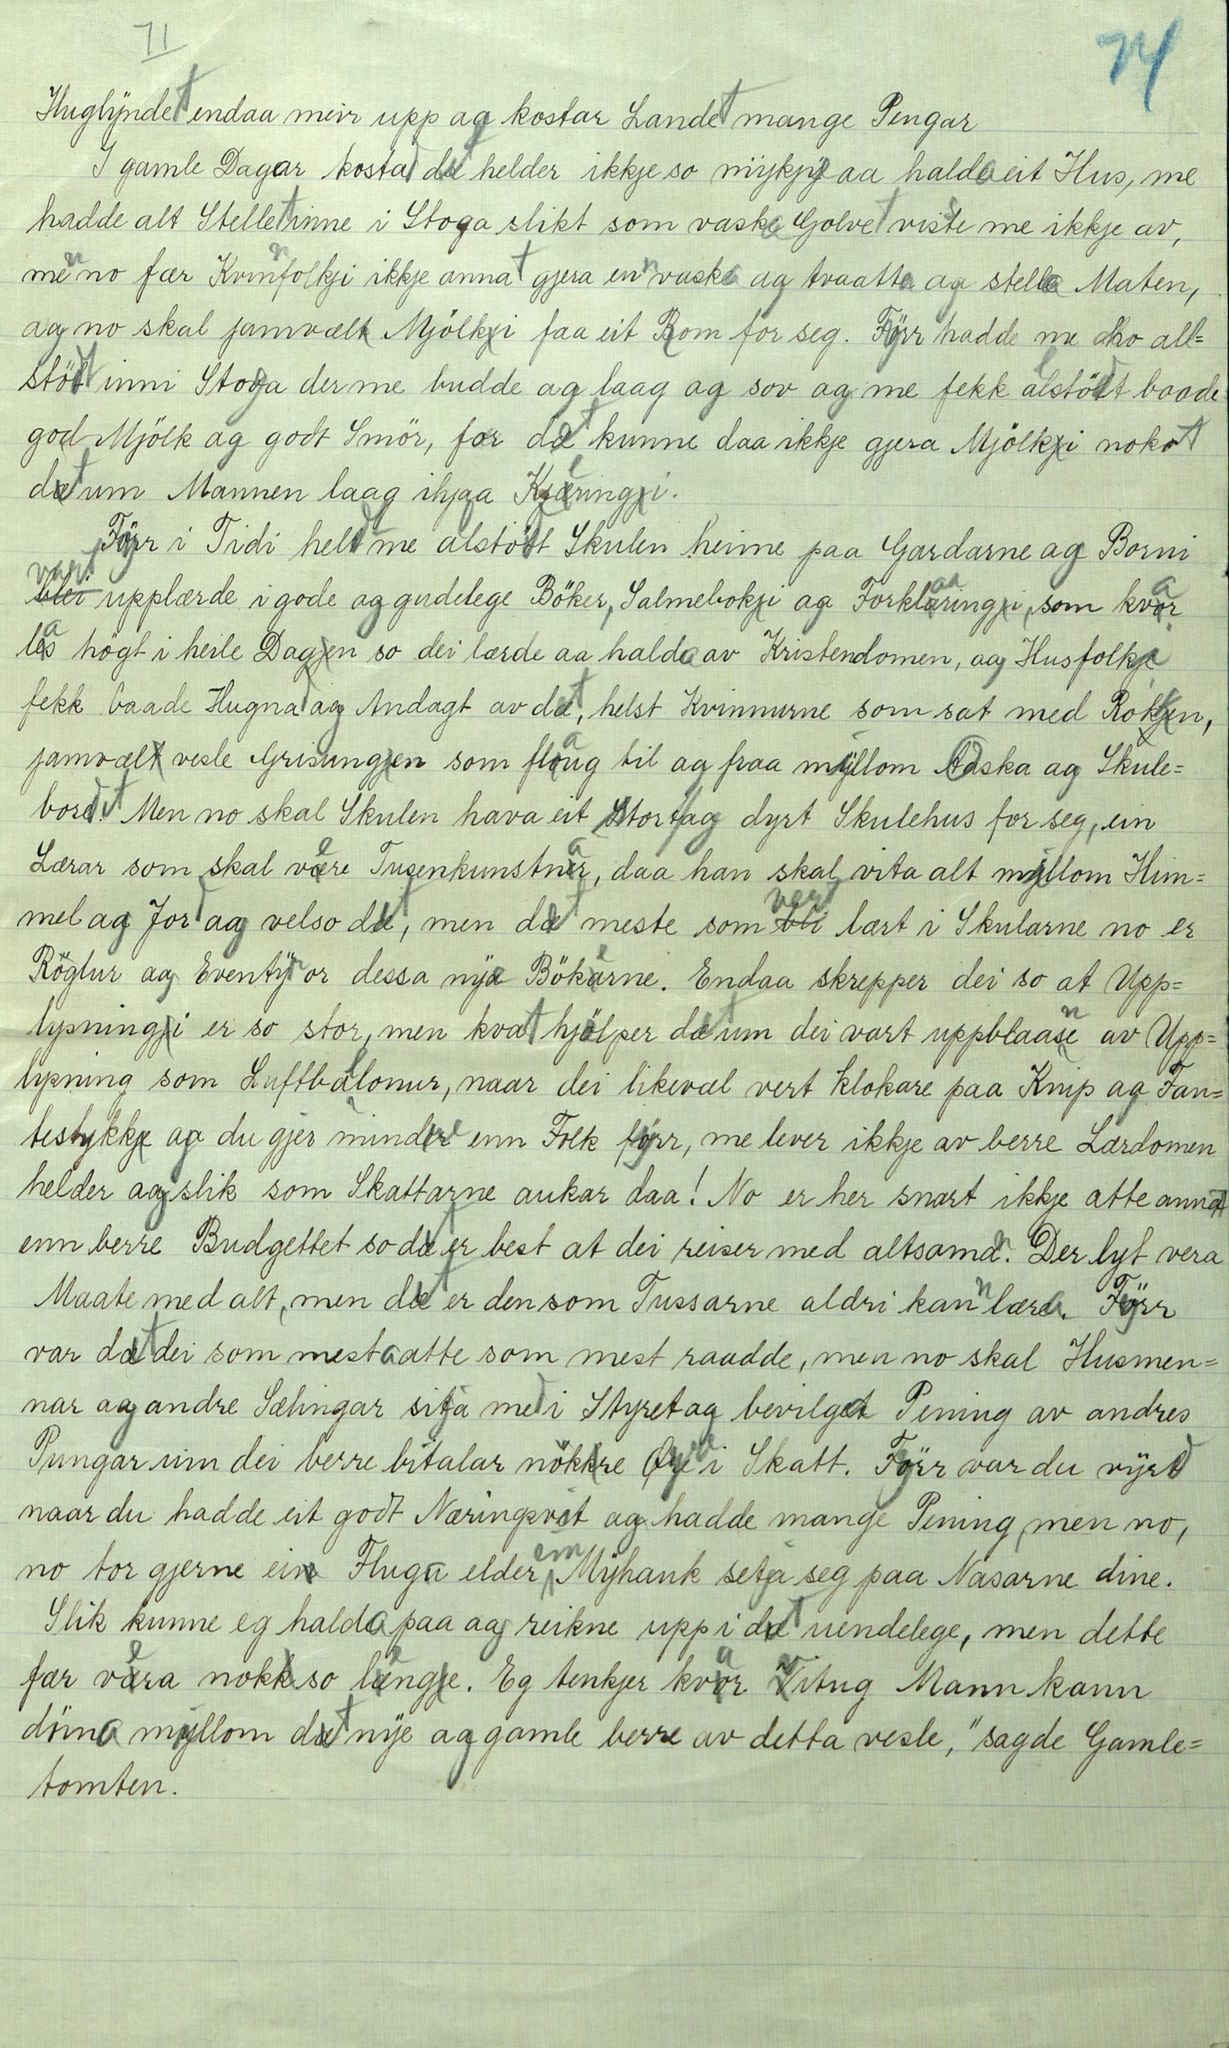 71
74
Huglyndet endaa meir upp og kostar Landet mange Pengar
I gamle Dagar kostad det helder ikkje so mykje aa halda eit Hus, me
hadde alt Stellet inne i Stoga slikt som vaska Golvet visste me ikkje av,
men no fær Kvinnfolkji ikkje annat gjera enn vaska og tvaatta og stella Maten,
og no skal jamvæl Mjölki faa eit Rom for seg. Fyrr hadde me dko all=
stödt inni Stoga der me budde og laag og sov og me fekk alstödt baade
god Mjölk og godt Smör, for det kunne daa ikkje gjera Mjölki nokot
det um Mannen laag ihjaa Kjeringi.
Fyrr i Tidi heldt me alstödt Skulen heime paa Gardarne og Borni
vart upplærde i gode og gudelege Böker, Salmeboki og Forklaaringi, som kvar
las högt i heile Dagen so dei lærde aa halda av Kristendomen, og Husfolka
fekk baade Hugnad og Andagt av det, helst Kvinnurne som sat med Rokken,
jamvæl vesle Grisungen som flaug til og fraa millom Aaska og Skule=
bordet. Men no skal Skulen hava eit Stort og dyrt Skulehus for seg, ein
Lærar som skal vere Tusenkunstnar, daa han skal vita alt millom Him=
mel og Jord og velso det, men det meste som vert lært i Skularne no er
Röglur og Eventyr or dessa nya Bökerne. Endaa skrepper dei so at Upp=
lysningi er so stor, men kvat hjölper det um dei vart uppblaasne av Upp=
lysning som Luftballonur, naar dei likevæl vert klokare paa Knip og Fan=
testykkje og du gjer mindre enn Folk fyrr, me lever ikkje av berre Lærdomen
helder og slik som Skattarne aukar daa! No er her snart ikkje atte annat
enn berre Budgettet so det er best at dei reiser med altsaman. Der lyt vera
Maate med alt, men det er den som Tussarne aldri kann læra. Fyrr
var det dei som mest aatte som mest raadde, men no skal Husmen=
nar og andre Sælingar sitja med i Styret og bevilget Pening av andres
Pungar um dei berre bitalar nökre Öyre i Skatt. Fyrr var du vyrd
naar du hadde eit godt Næringsvit og hadde mange Pening, men no,
no tor gjerne ein Fluga elder ein Myhank setja seg paa Nasarne dine.
Slik kunne eg halda paa og reikne upp i det uendelege, men dette
fær vera nok so lengje. Eg tenkjer kvar Vitug Mann kann
döma millom det nye og gamle berre av detta vesle," sagde Gamle=
tomten.